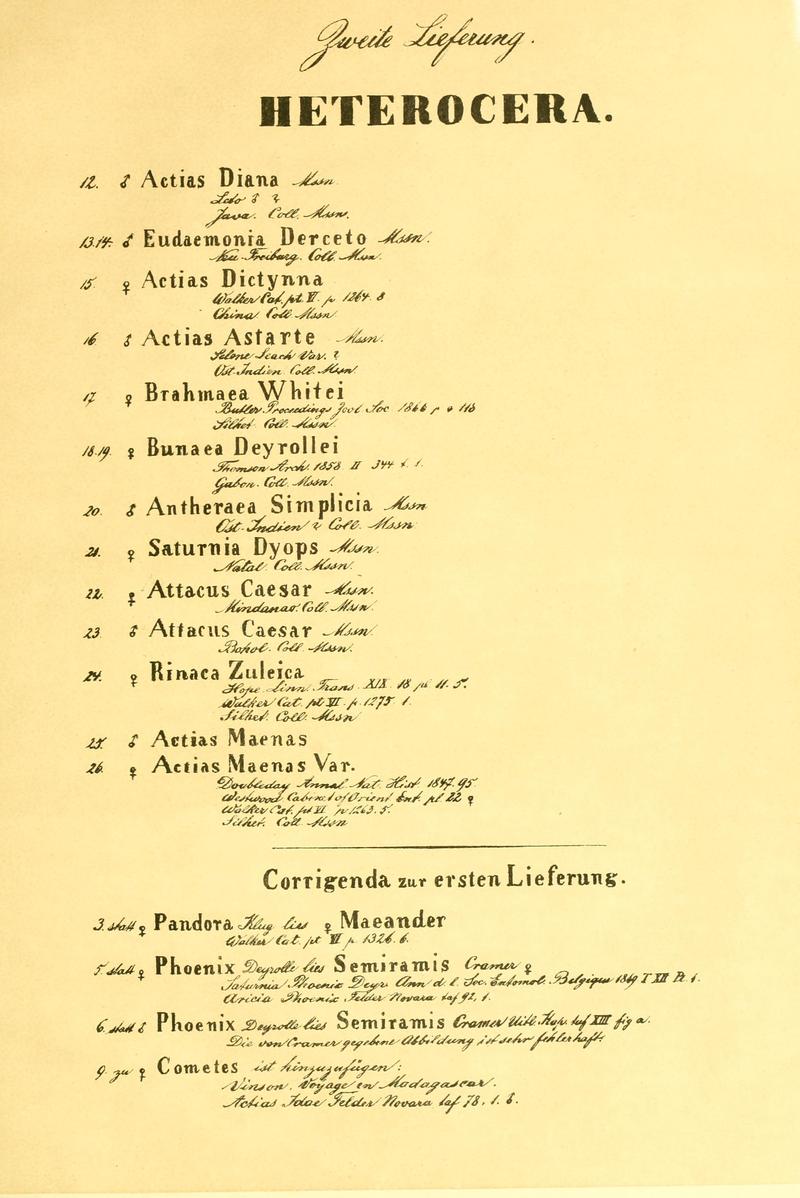 Zweite Lieferung.
HETEROCERA.
12. ♂ Actias Diana Mssn.
Leto ♂ ?
Java. Coll. Mssn.
13.14. ♂ Eudaemonia Derceto Mssn.
Freiburg. Coll. Mssn.
15. ♀ Actias Dictynna
Walker Cat. pt. VI. p. 1264. 8
China Coll. Mssn
16 ♂ Actias Astarte Mssn.
Selene Leach Var. ?
Ost. Indien Coll. Mssn.
17 ♀ Brahmaea Whitei
Butler Proceedings Zool Soc 1866 p 116
Silhet Coll. Mssn.
18.19. ♀ Bunaea Deyrollei
Thomson Arch. 1858 II 344 t. 1.
Gabon. Coll. Mssn.
20. ♂ Antheraea Simplicia Mssn
Ost. Indien ? Coll. Mssn
21. ♀ Saturnia Dyops Mssn.
Natal Coll. Mssn.
22. ♀ Attacus Caesar Mssn.
Mindanao. Coll. Mssn.
23. ♂ Attacus Caesar Mssn
Bohol. Coll. Mssn.
24. ♀ Rinaca Zuleica
Hope Linn. Trans. XIX 18 pl 11. 5.
Walker Cat. pt VI. p. 1275 1.
Silhet. Coll. Mssn
25. ♂ Actias Maenas
26. ♀ Actias Maenas Var.
Doubleday Annal Nat. Hist 1847. 95.
Westwood Cabinet of Orient Ent. pl 22 ♀
Walker Cat. pt VI p. 1263. 5.
Silhet. Coll. Mssn
Corrigenda zur ersten Lieferung.
3. statt ♀ Pandora Klug lies ♀ Maeander
Walker Cat. pt VI p. 1326. 6.
5. statt ♀ Phoenix Deyrolle lies Semiramis Cramer ♀
Saturnia Phoenix Deyr. Ann d. l. Soc. Entomol. Belgique 1869 T XII Pl. 1.
Aricia Phoenix Felder Novara taf 92, 1.
6. statt ♂ Phoenix Deyrolle lies Semiramis Cramer Uitl. Kap. taf XIII fig a.
Die von Cramer gegebene Abbildung ist sehr fehlerhaft
9. zu ♀ Cometes ist hinzuzufügen:
Vinson. Voyage en Madagascar.
Actias Idae Felder Novara taf 78. 1. 2.